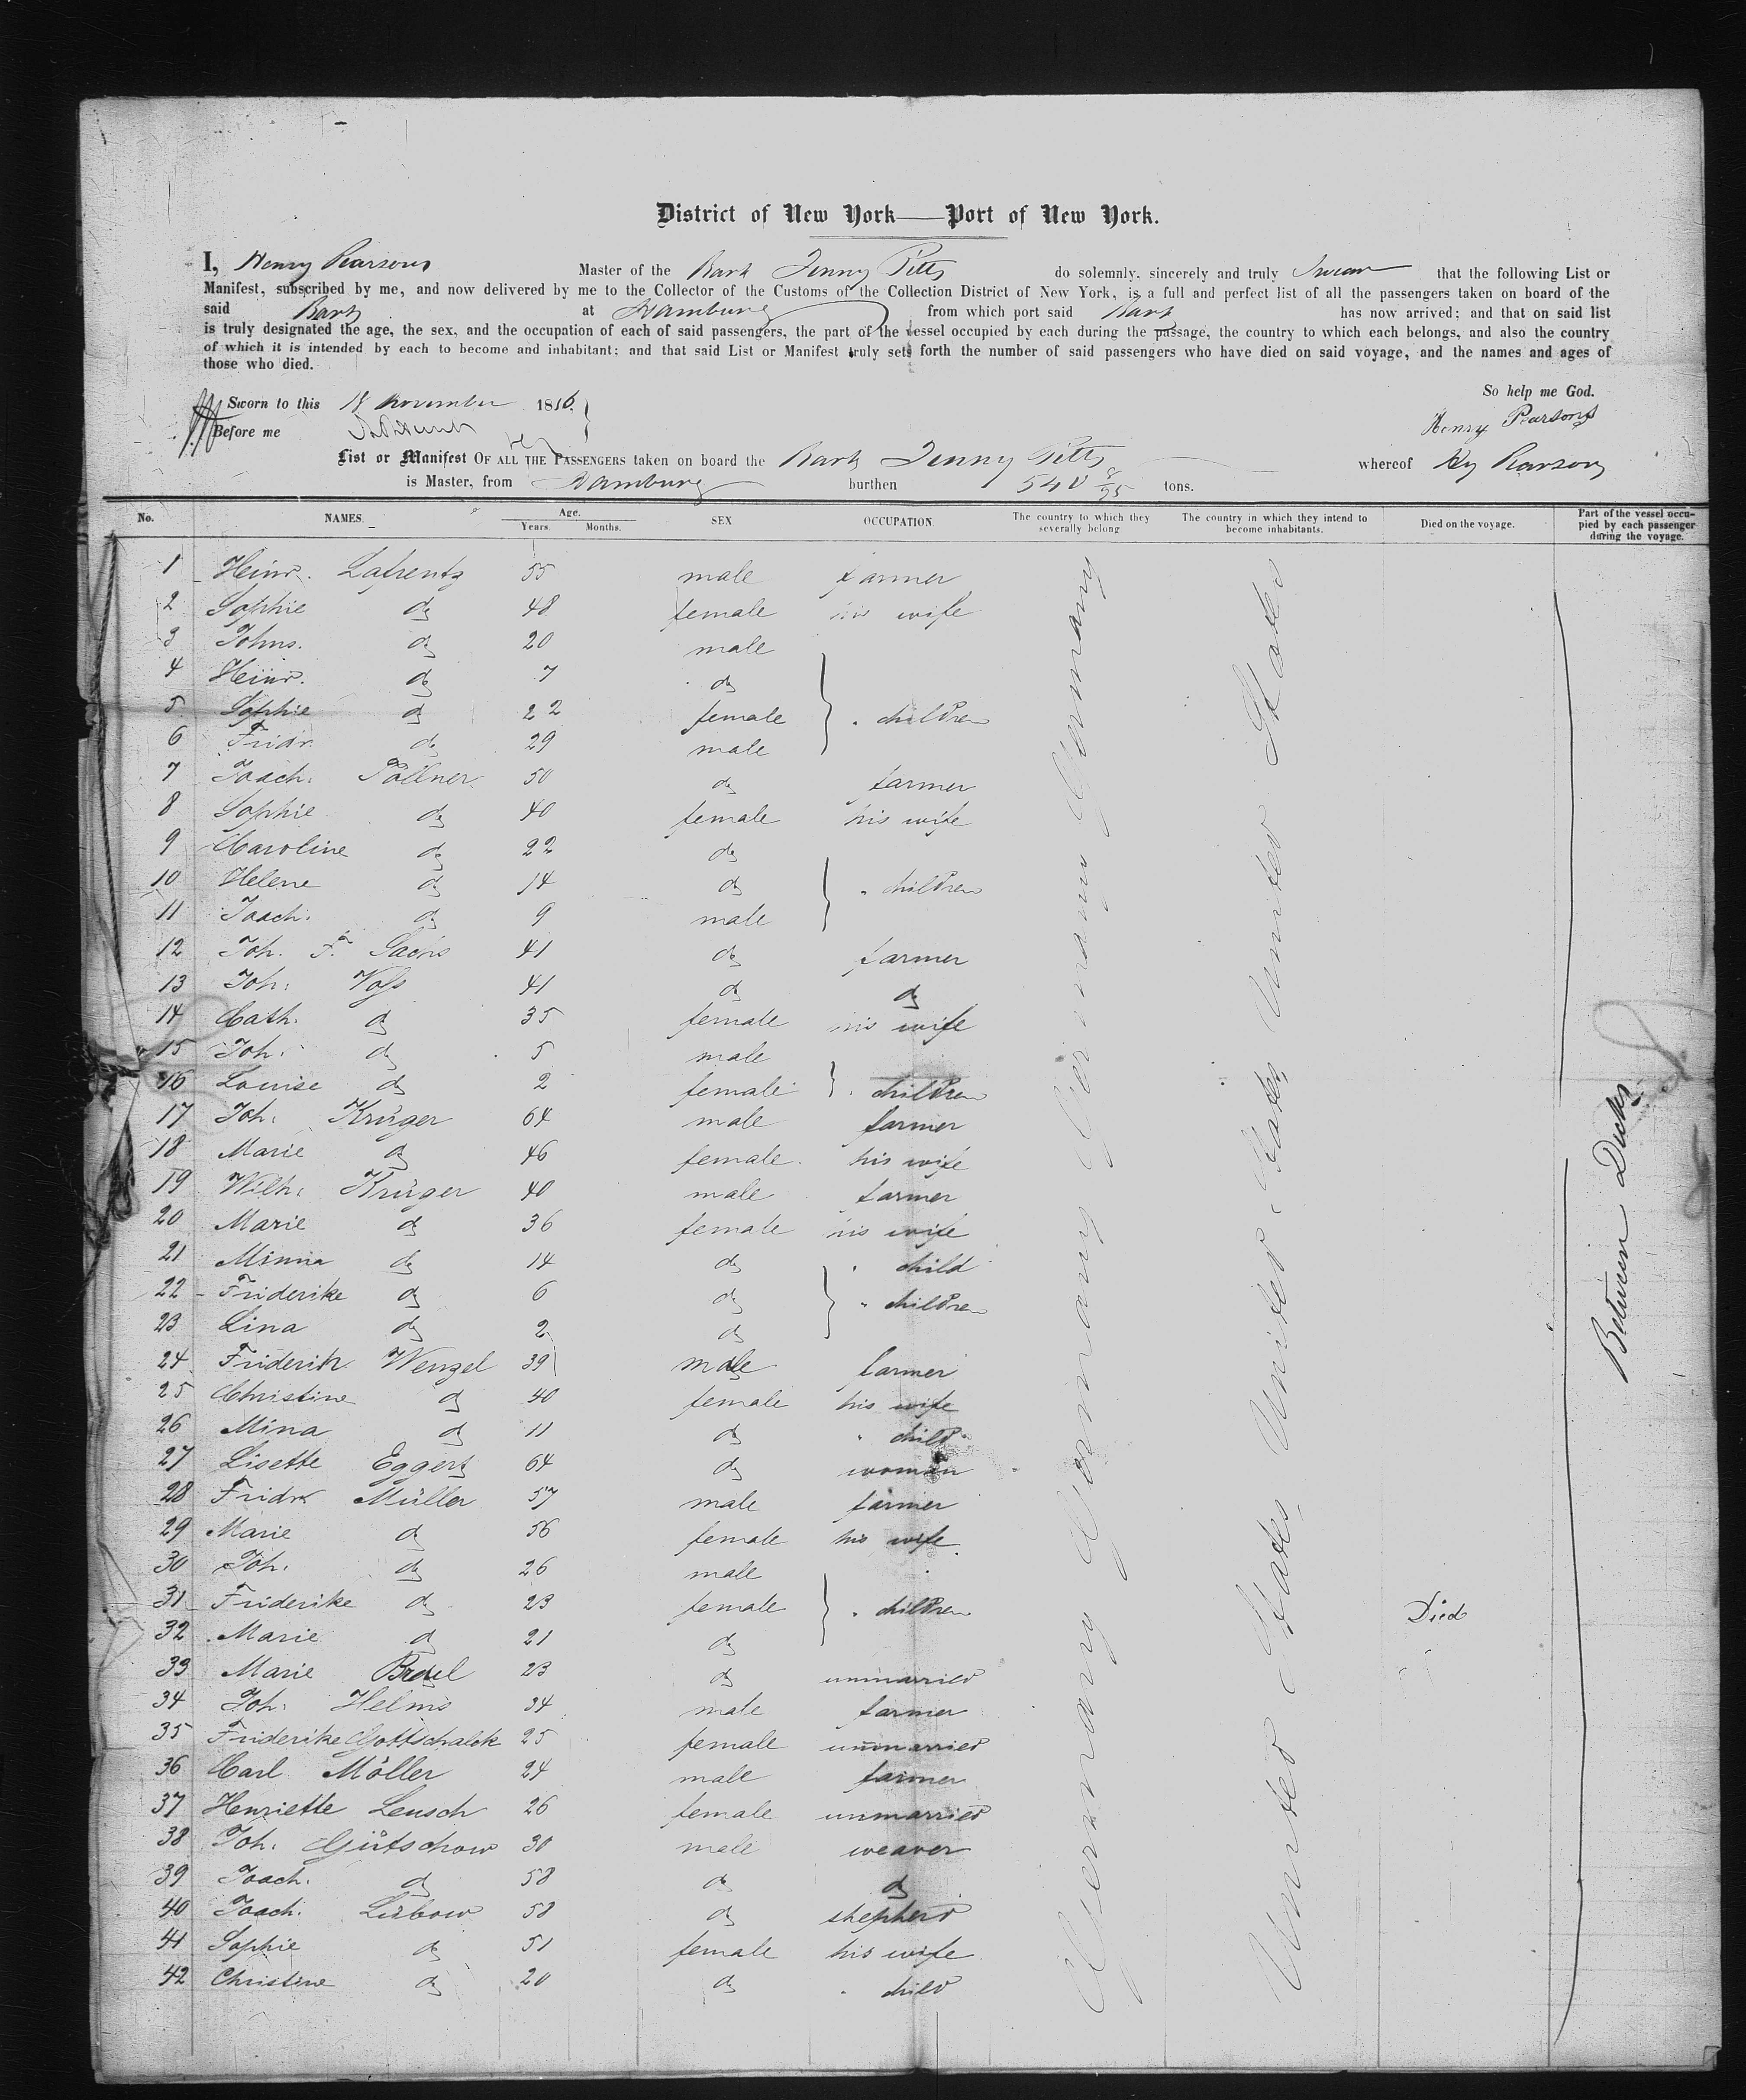 District of New York—Port of New York.
I, Henry Pearsons Master of the Bark Jenny Pitts do solemnly. sincerely and truly swear that the following List or
Manifest, subscribed by me, and now delivered by me to the Collector of the Customs of the Collection District of New York, is a full and perfect list of all the passengers taken on board of the
said Bark at Hamburg from which port said Bark has now arrived; and that on said list
is truly designated the age, the sex, and the occupation of each of said passengers, the part of the vessel occupied by each during the passage, the country to which each belongs, and also the country
of which it is intended by each to become and inhabitant; and that said List or Manifest truly sets forth the number of said passengers who have died on said voyage, and the names and ages of
those who died.
So help me God.
Sworn to this 18 November 1856.
Henry Pearsons
Before me
List or Manifest OF ALL THE PASSENGERS taken on board the Bark Jenny Pitts whereof Hy Pearsons
is Master, from Hamburg burthen 548 8/95 tons.
No. NAMES. Age. Years. Months. SEX OCCUPATION. The country to which they severally belong The country in which they intend to become inhabitants. Died on the voyage. Part of the vessel occupied by each passenger during the voyage.
1 Heinr. Lafrentz 55 male farmer
2 Sophie do 48 female his wife
3 Johns. do 20 male
4 Heinr. do 7 do
5 Sophie do 22 female " children
6 Fridr. do 29 male
7 Joach. Pöllner 50 do farmer
8 Sophie do 40 female his wife
9 Caroline do 22 do
10 Helene do 14 do " children
11 Joach. do 9 male
12 Joh. F. 41 do farmer
13 Joh: Voss 41 do do
14 Cath. do 35 female his wife
15 Joh. do 5 male
16 Louise do 2 female " children
17 Joh: Krüger 64 male farmer
18 Marie do 46 female his wife
19 Wilh: Krüger 40 male farmer
20 Marie do 36 female his wife
21 Minna do 14 do " child
22 Friderike do 6 do " children
23 Lina do 2 do
24 Friderih Wenzel 39 male farmer
25 Christine do 40 female his wife
26 Mina do 11 do " child
27 Lisette Eggers 64 do woman
28 Fridr. Müller 57 male farmer
29 Marie do 56 female his wife
30 Joh. do 26 male
31 Friderike do 23 female " children Died
32 Marie do 21 do
33 Marie 23 do unmarried
34 Joh: Helms 34 male farmer
35 Friderike Gottschalck 25 female unmarried
36 Carl Möller 24 male farmer
37 Henriette Leusch 26 female unmarried
38 Joh. Gütschow 30 male weaver
39 Joach. do 58 do do
40 Joach. Lübow 58 do shepherd
41 Sophie do 51 female his wife
42 Christine do 20 do " child
Germany Germany Germany Germany
United States United States United States
Between Decks